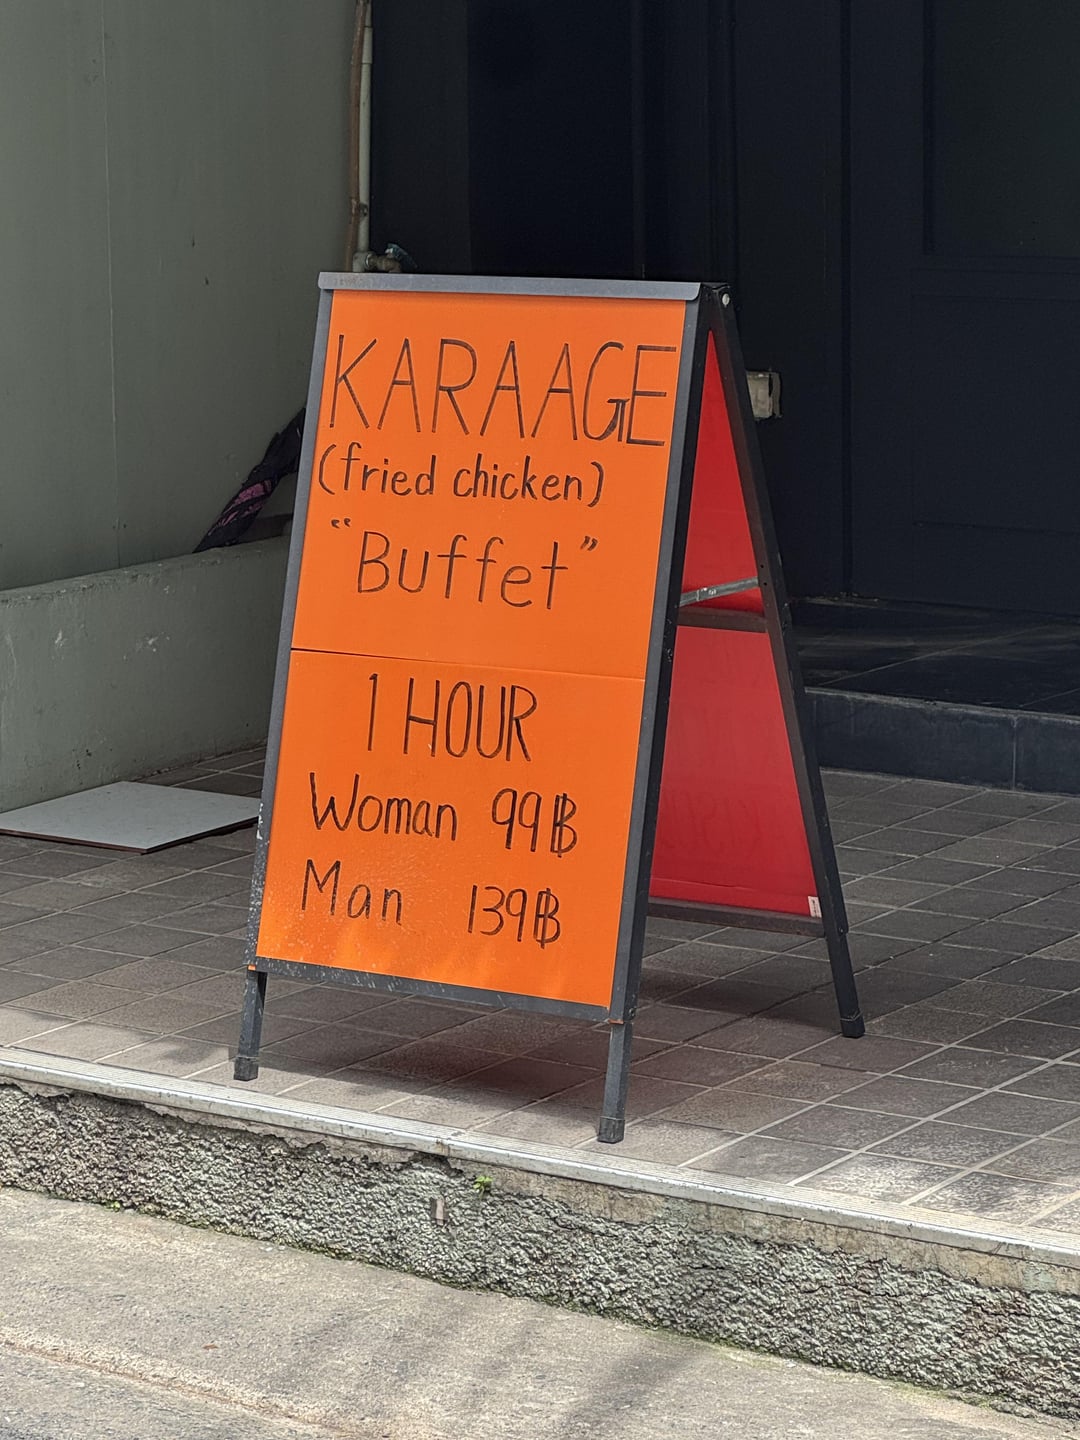 KARAAGE
(fried chicken)
"Buffet"
1 HOUR
Woman 99฿
Man 139฿